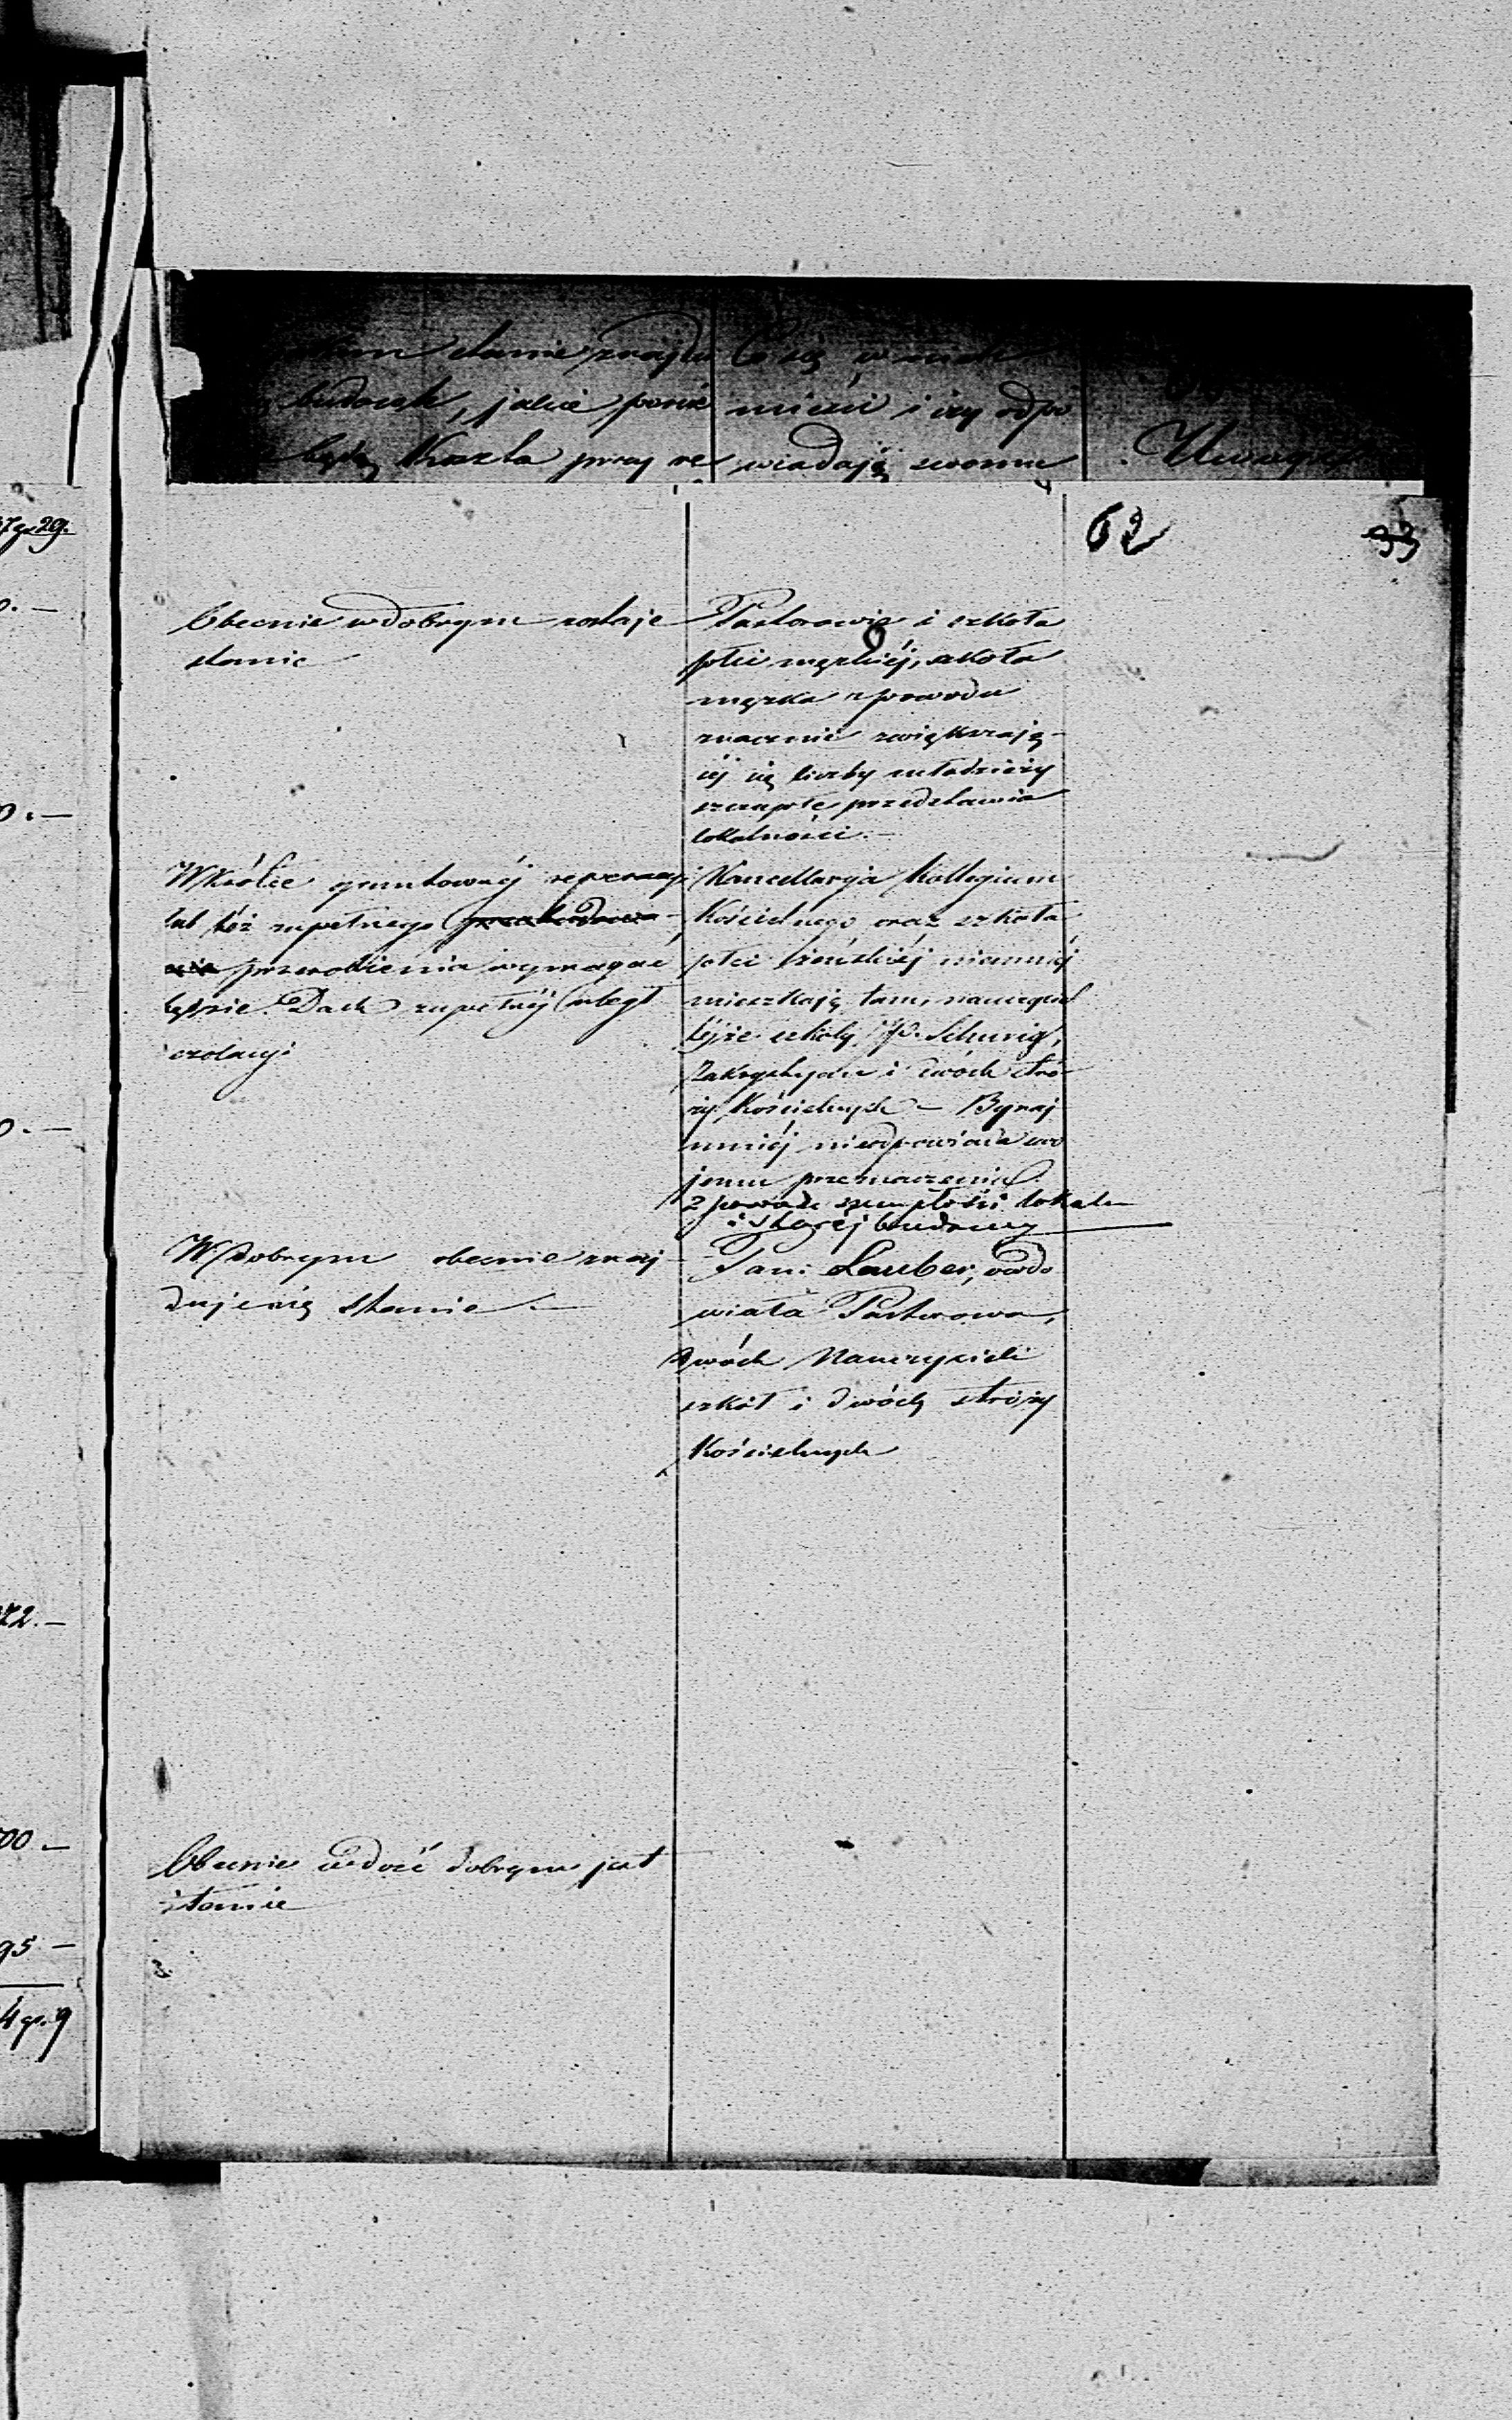 stanie znajdu
budowle, jakie ponie
będą Koszta przy re
Co się w nich
mieści i czy odpo
wiadają swemu
Uwagi
62
33
Obecnie w dobrym zostaje
stanie
Pastorowie i szkoła
płci męzkiéj, szkoła
męzka z powodu
znacznie zwiększają-
céj się liczby młodzieży
szczupłe przedstawia
lokalności.—
Wkrótce gruntownéj reperacyi
lub też zupełnego przebudowa-
nia przerobienia wymagać
będzie. Dach zupełnéj uległ
Kancellaryja Kollegium
Kościelnego oraz szkoła
płci żeńskiéj niemniéj
mieszkają tam, nauczyciel
téjże szkoły, P. Schurig,
Zakrystyan i dwóch stró-
ży Kościelnych — Bynaj
mniéj nieodpowiada swo
jemu przeznaczeniu.
z powodu szczupłości lokalu
i staréj budowy
W dobrym obecnie znaj-
duje się stanie.—
Pani Lauber, owdo
wiała Pastorowa,
dwóch Nauczycieli
szkół i dwóch stróży
Kościelnych
Obecnie w dość dobrym jest
stanie
7 gr 29.
0.—
0.—
0.—
72.—
00—
95—
4 gr. 9